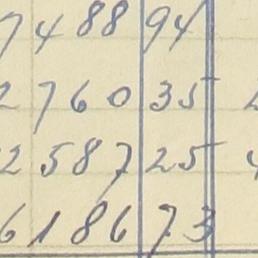 7488 94
2760 35
2587 25
6186 73